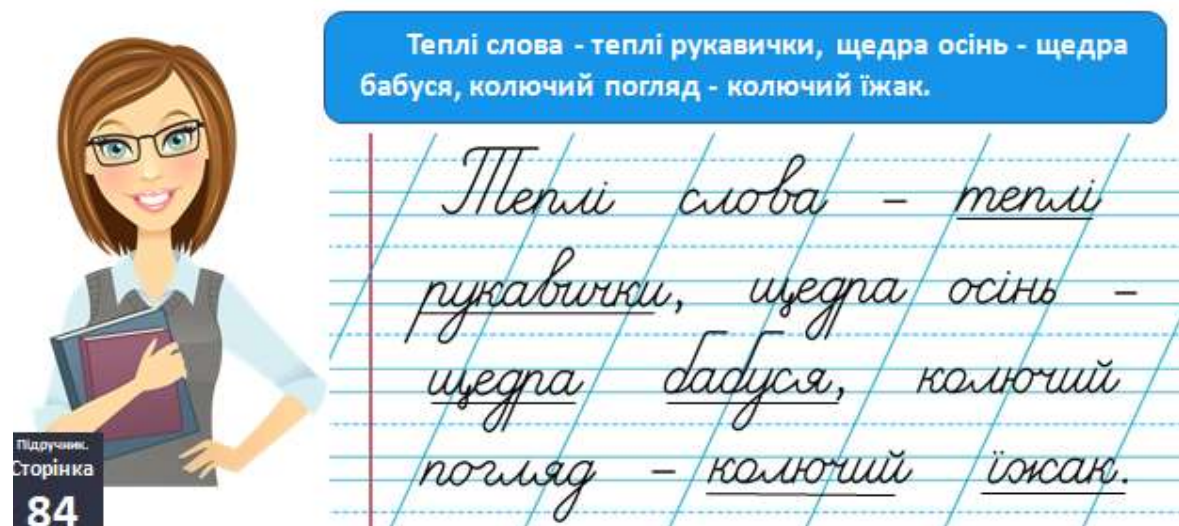 Теплі слова - теплі рукавички, щедра осінь - щедра
бабуся, колючий погляд - колючий їжак.
Теплі слова – теплі
рукавички, щедра осінь –
щедра бабуся, колючий
погляд – колючий їжак.
Підручник.
Сторінка
84